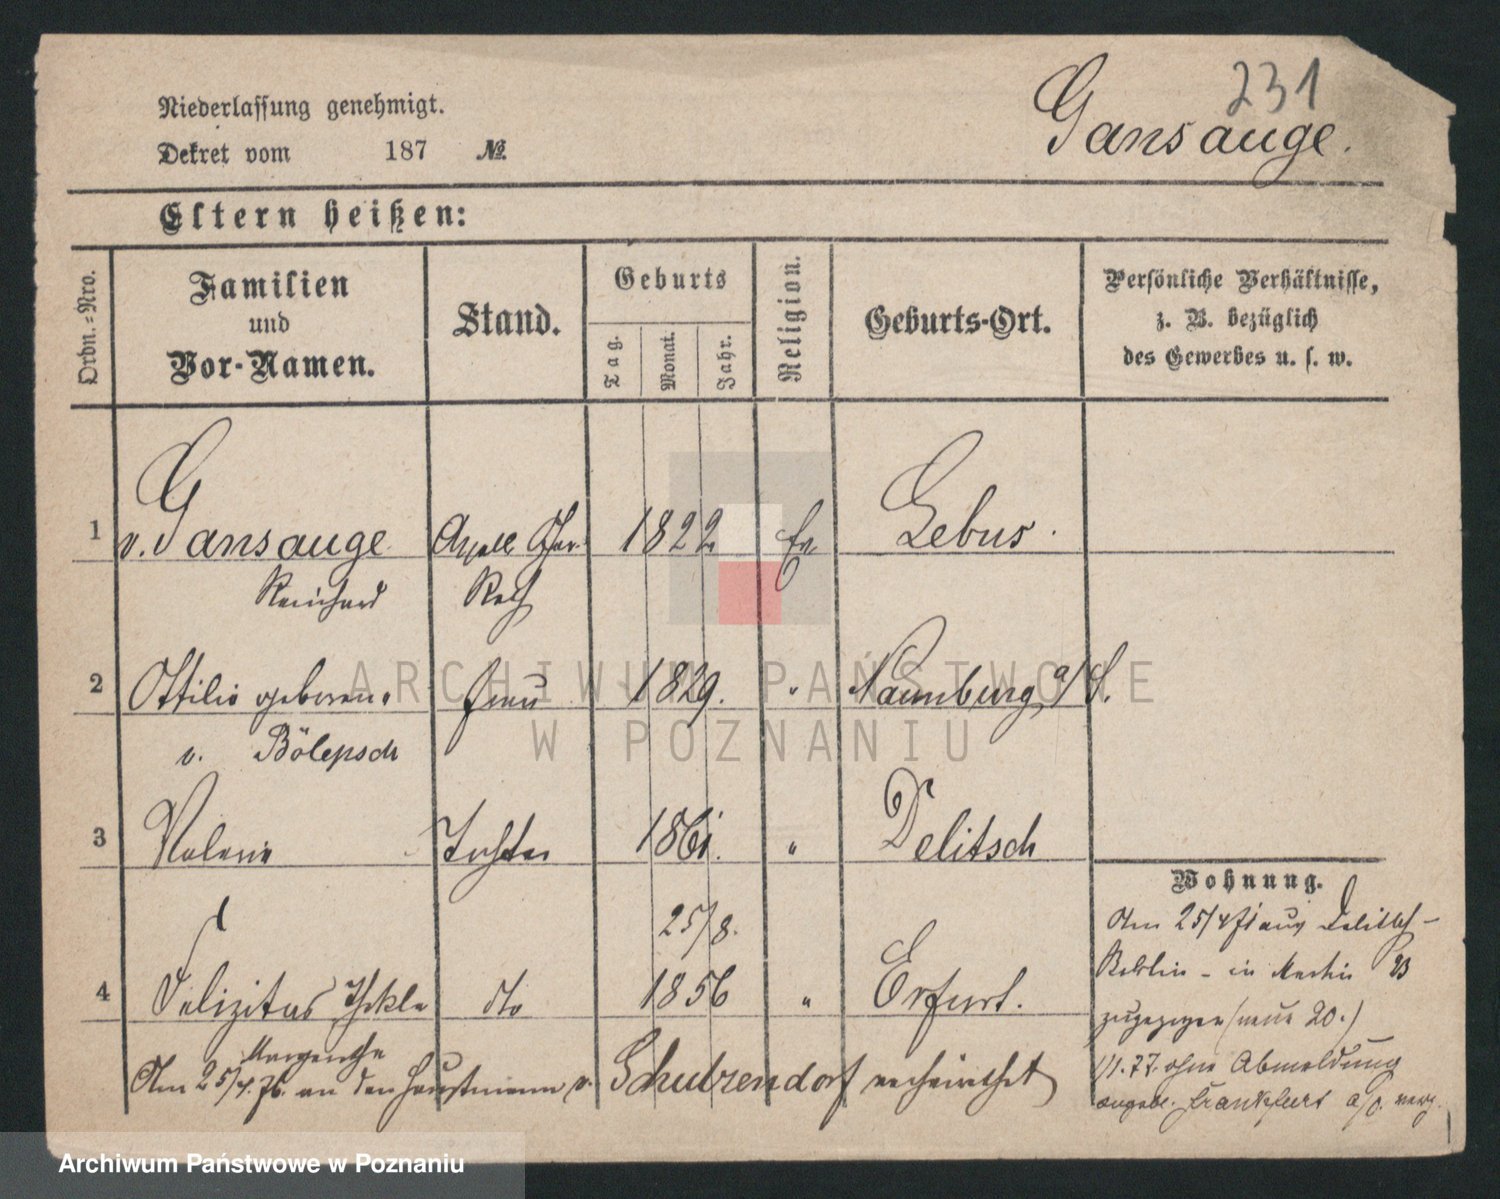 231
Gansauge.
Niederlassung genehmigt.
Dekret vom 187 №
Eltern heißen:
Ordn.-Nro.
Familien und Vor-Namen.
Stand.
Geburts
Tag.
Monat.
Jahr.
Religion.
Geburts-Ort.
Persönliche Verhältnisse,
z. B. bezüglich
des Gewerbes u. s. w.
1 v. Gansauge Apell Ger. 1822 Ev Lebus.
Reinhard Rath
2 Ottilie geboren. Frau 1829. " Naumburg a/S.
v. Bölepsch
3 Valerie Tochter 1861. " Delitsch
Wohnung.
25/8.
4 Felizitas Thekla do 1856 " Erfurt.
Margarethe
Am 25/4.76. an den Hauptmann v. Schutzendorf verheirathet
Am 25/4 71 aus Delitsch -
in Martin 23
zugezogen (neue 20.)
1/1.77. ohne Abmeldung
angebl. Frankfurt a/O. verz.
ARCHIWUM PAŃSTWOWE
W POZNANIU
Archiwum Państwowe w Poznaniu